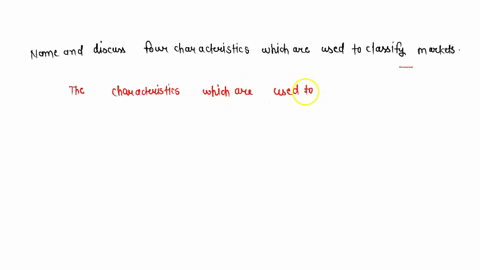 Name and discuss four characteristics which are used to classify markets.
The characteristics which are used to